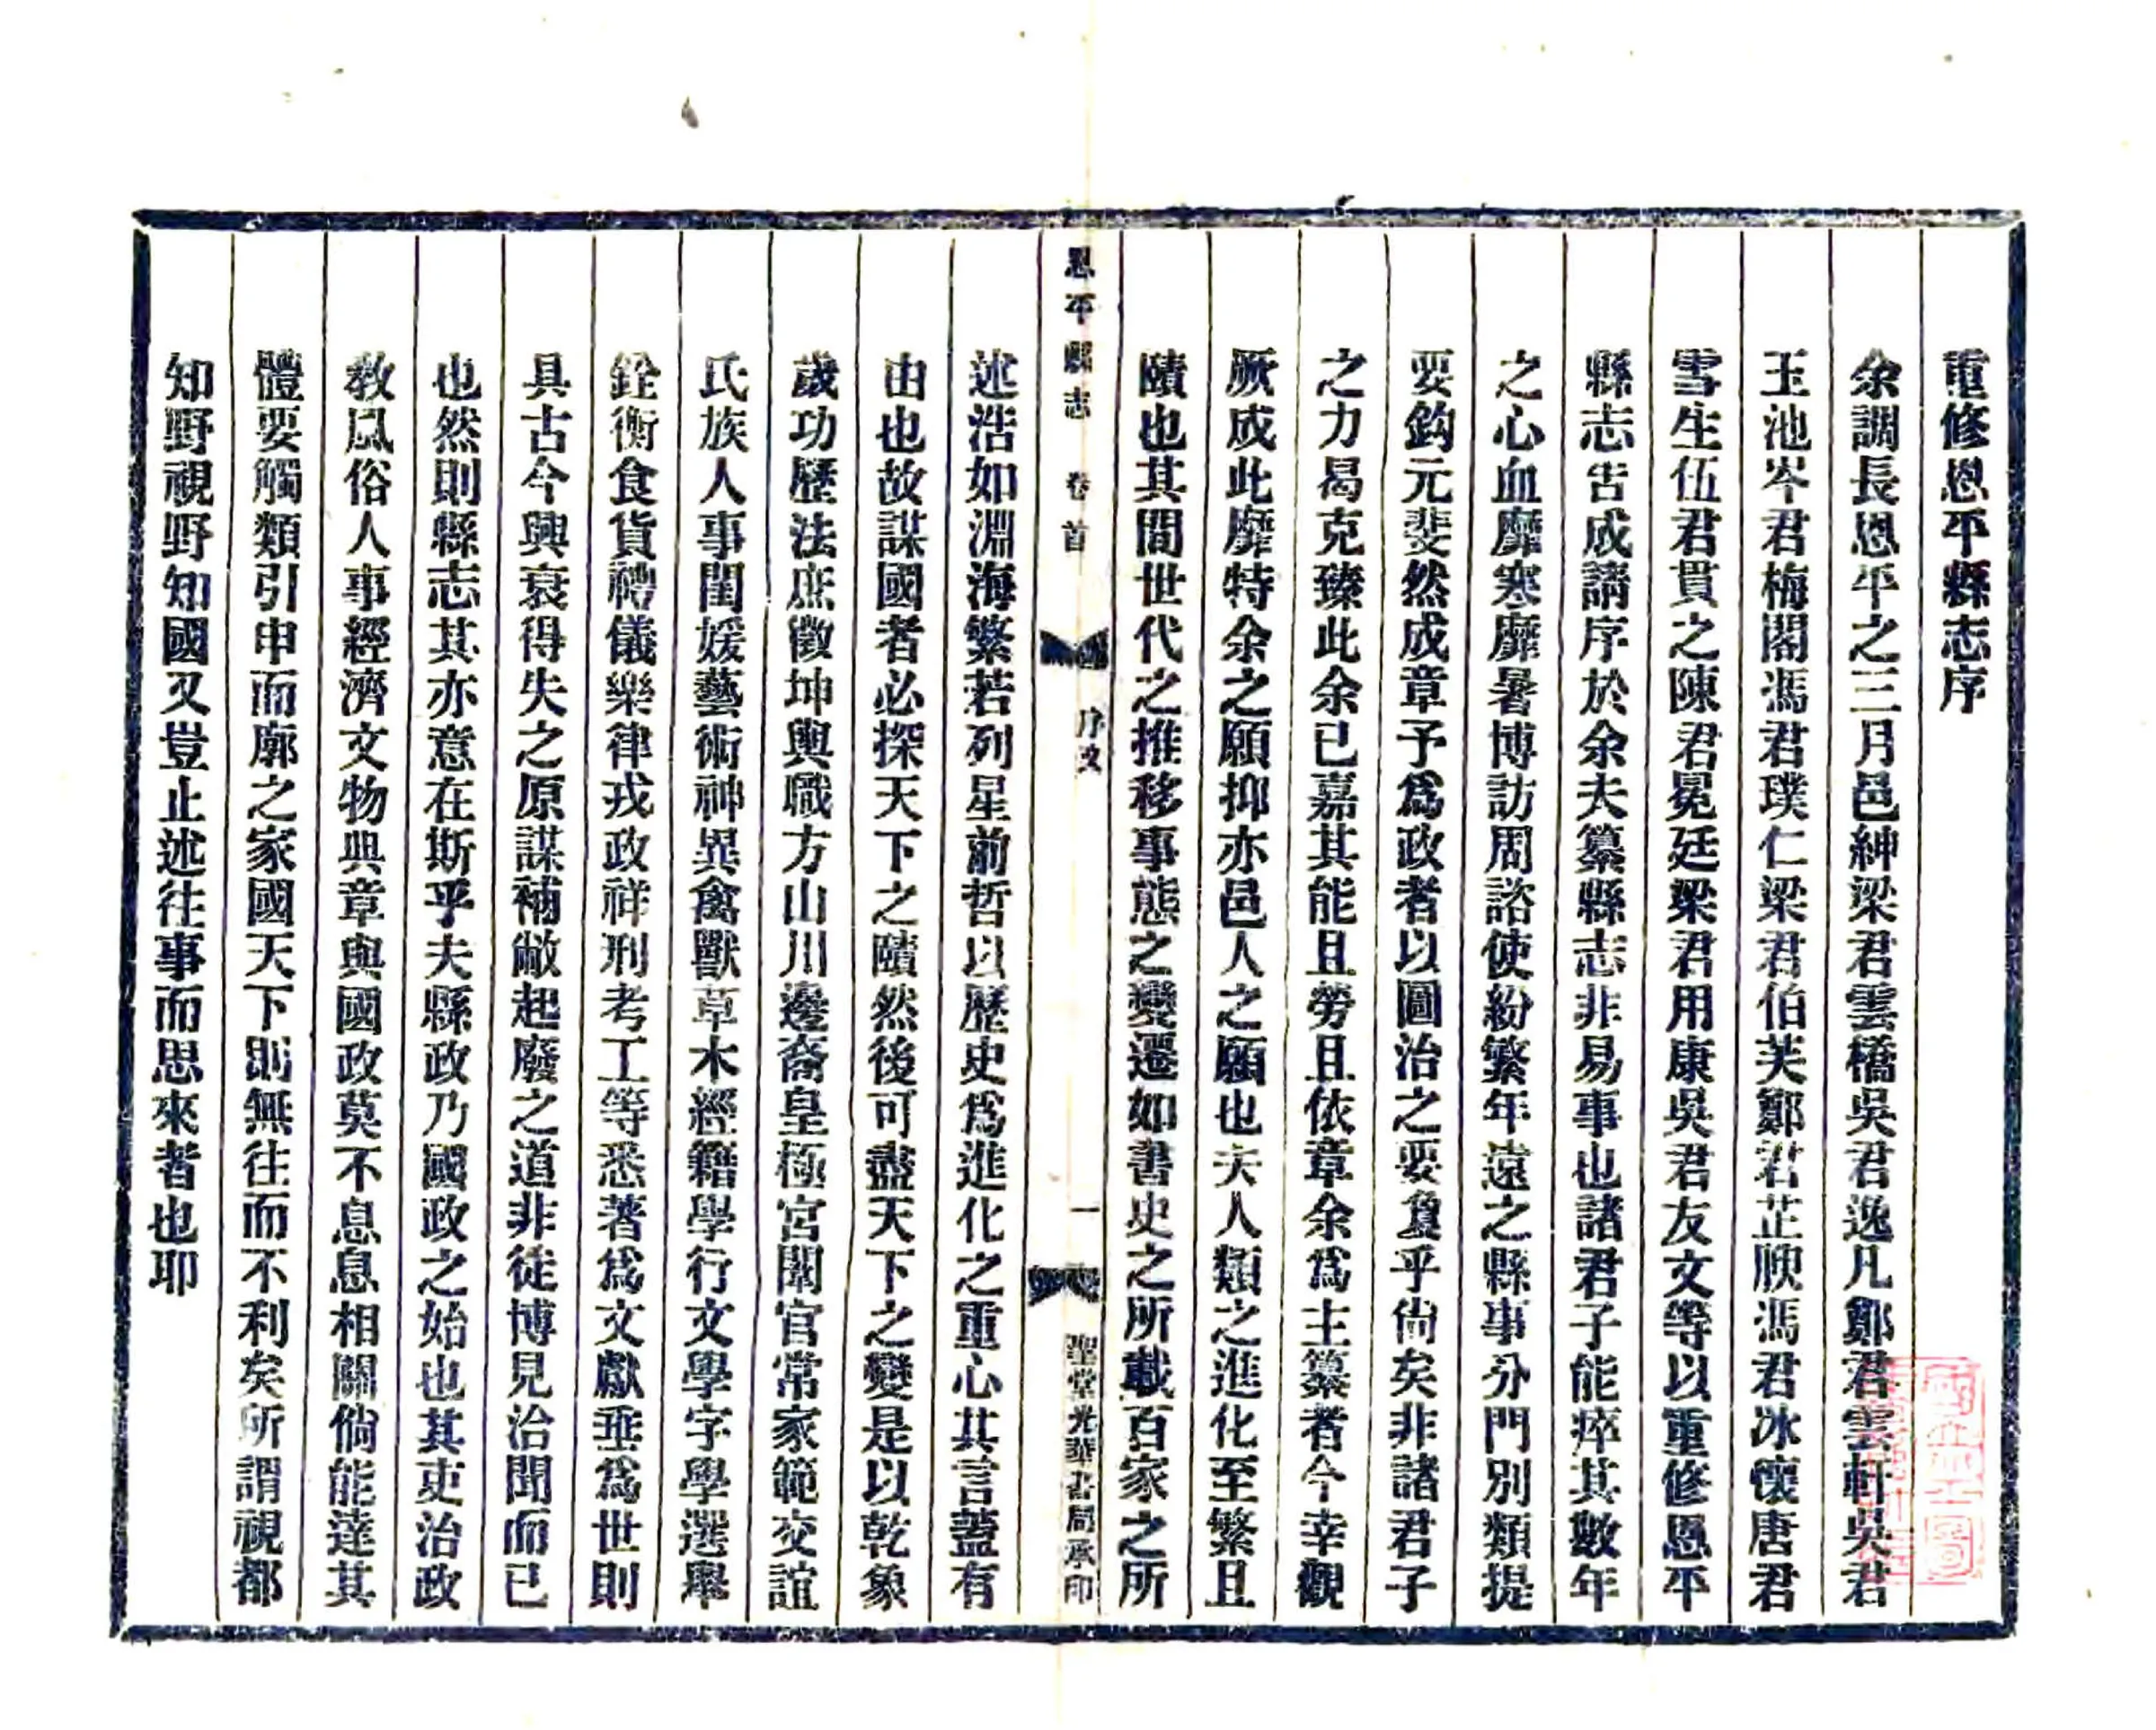 重修恩平縣志序
余調長恩平之三月邑紳梁君雲橋吳君逸凡鄭君雲軒吳君
玉池岑君梅閣馮君璞仁梁君伯芙鄭君芷腴馮君冰懷唐君
雪生伍君貫之陳君冕廷梁君用康吳君友文等以重修恩平
縣志吿成請序於余夫纂縣志非易事也諸君子能瘁其數年
之心血靡寒靡暑博訪周諮使紛繁年遠之縣事分門別類提
要鈎元斐然成章予爲政者以圖治之要夐乎尙矣非諸君子
之力曷克臻此余已嘉其能且勞且依章余爲主纂者今幸觀
厥成此靡特余之願抑亦邑人之願也夫人類之進化至繁且
賾也其間世代之推移事態之變遷如書史之所載百家之所
恩平縣志 卷首 序文 一 聖堂光華書局承印
述浩如淵海繁若列星前哲以歷史爲進化之重心其言蓋有
由也故謀國者必探天下之賾然後可盡天下之變是以乾象
歲功歷法庶徵坤輿職方山川邊裔皇極宮闈官常家範交誼
氏族人事閨媛藝術神異禽獸草木經籍學行文學字學選舉
銓衡食貨禮儀樂律戎政祥刑考工等悉著爲文獻垂爲世則
具古今興衰得失之原謀補敝起廢之道非徒博見洽聞而已
也然則縣志其亦意在斯乎夫縣政乃國政之始也其吏治政
敎風俗人事經濟文物典章與國政莫不息息相關倘能達其
體要觸類引申而廓之家國天下則無往而不利矣所謂視都
知野視野知國又豈止述往事而思來者也耶